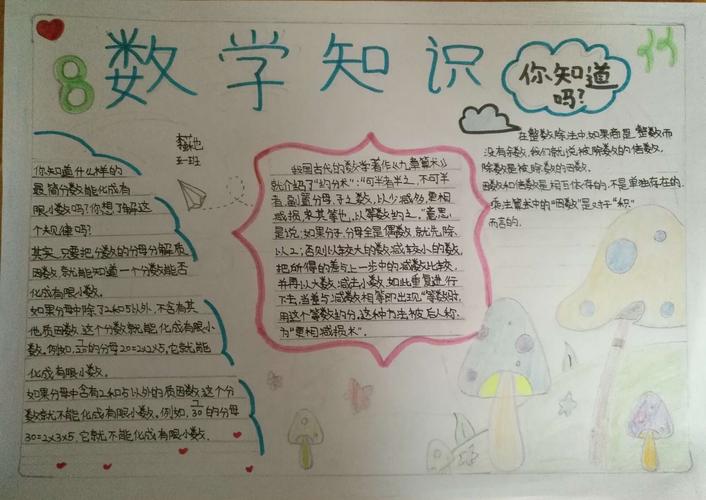 8
数学知识
你知道
吗?
五一班
你知道什么样的
最简分数能化成有
限小数吗?你想了解这
个规律吗?
其实,只要把分数的分母分解质
因数,就能知道一个分数能否
化成有限小数。
如果分母中除了2和5以外,不含有其
他质因数,这个分数就能化成有限小
数。例如,的分母20=2x2x5,它就能
化成有限小数。
如果分母中含有2和5以外的质因数,这个分
数就不能化成有限小数。例如,7/30的分母
30=2x3x5,它就不能化成有限小数.
我国古代的数学著作《九章算术》
就介绍了"约分术":"可半者半之,不可半
者,副置分母、子之数,以少减多,更相
减损,求其等也,以等数约之。"意思
是说:如果分子、分母全是偶数,就先除
以2;否则以较大的数减较小的数,
把所得的差与上一步中的减数比较,
并再以大数减去小数,如此重复进行
下去,当差与减数相等即出现"等数"时,
用这个等数约分,这种方法被后人称
为"更相减损术".
在整数除法中,如果商是整数而
没有余数,我们就说被除数的倍数,
除数是被除数的因数。
因数和倍数是相互依存的,不是单独存在的.
乘法算术中的"因数"是对于"积"
而言的.